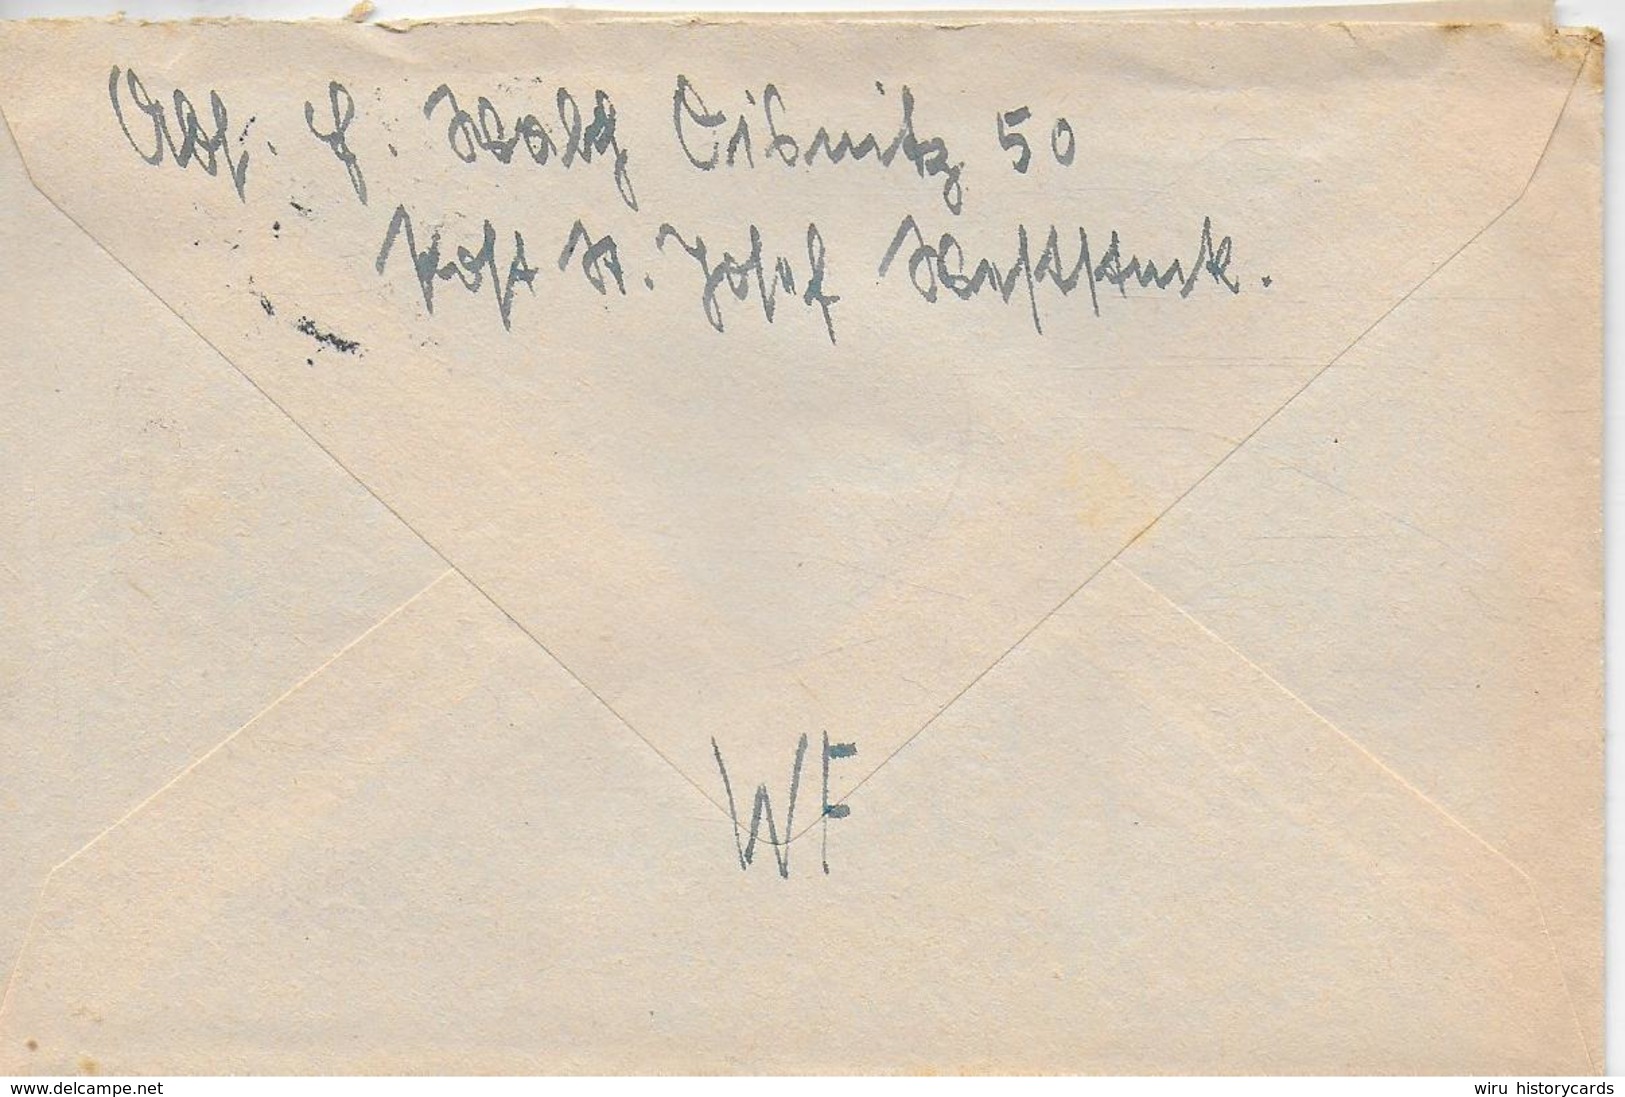 Abs. F. Wolf Oisnitz 50
Post St. Josef Weststmk.
WF
www.delcampe.net
wiru historycards